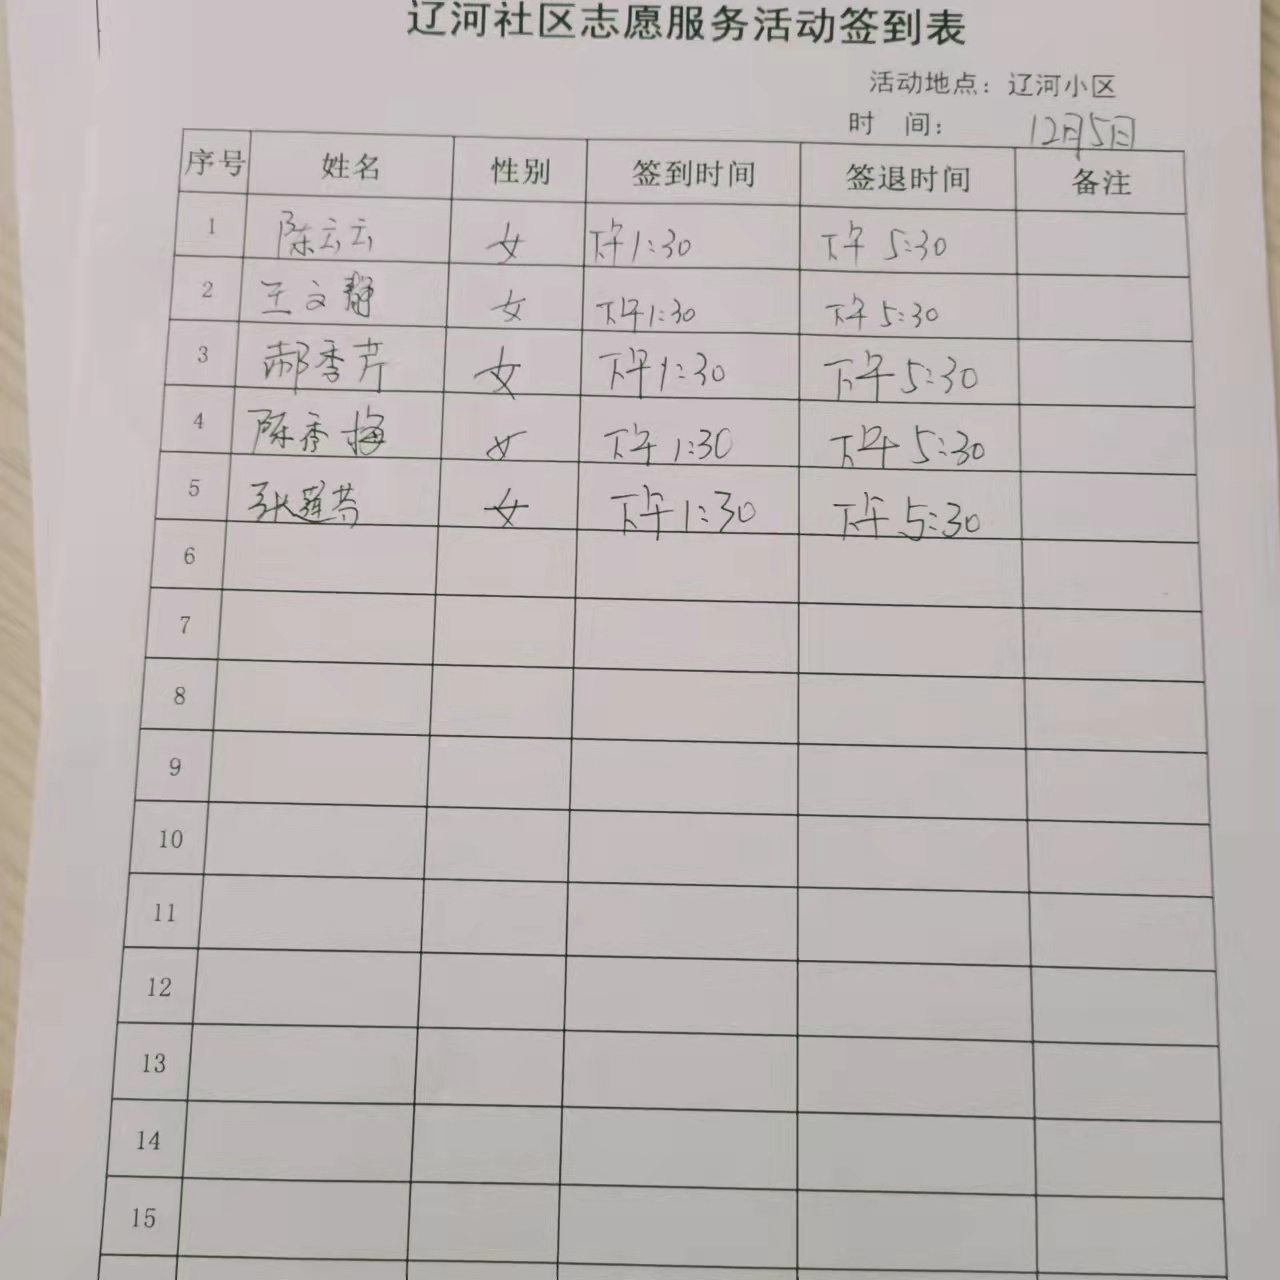 辽河社区志愿服务活动签到表
活动地点：辽河小区
时 间： 12月5日
序号 姓名 性别 签到时间 签退时间 备注
1 陈云云 女 下午1:30 下午5:30
2 王文静 女 下午1:30 下午5:30
3 郝秀芹 女 下午1:30 下午5:30
4 陈秀梅 女 下午1:30 下午5:30
5 张莲芬 女 下午1:30 下午5:30
6
7
8
9
10
11
12
13
14
15